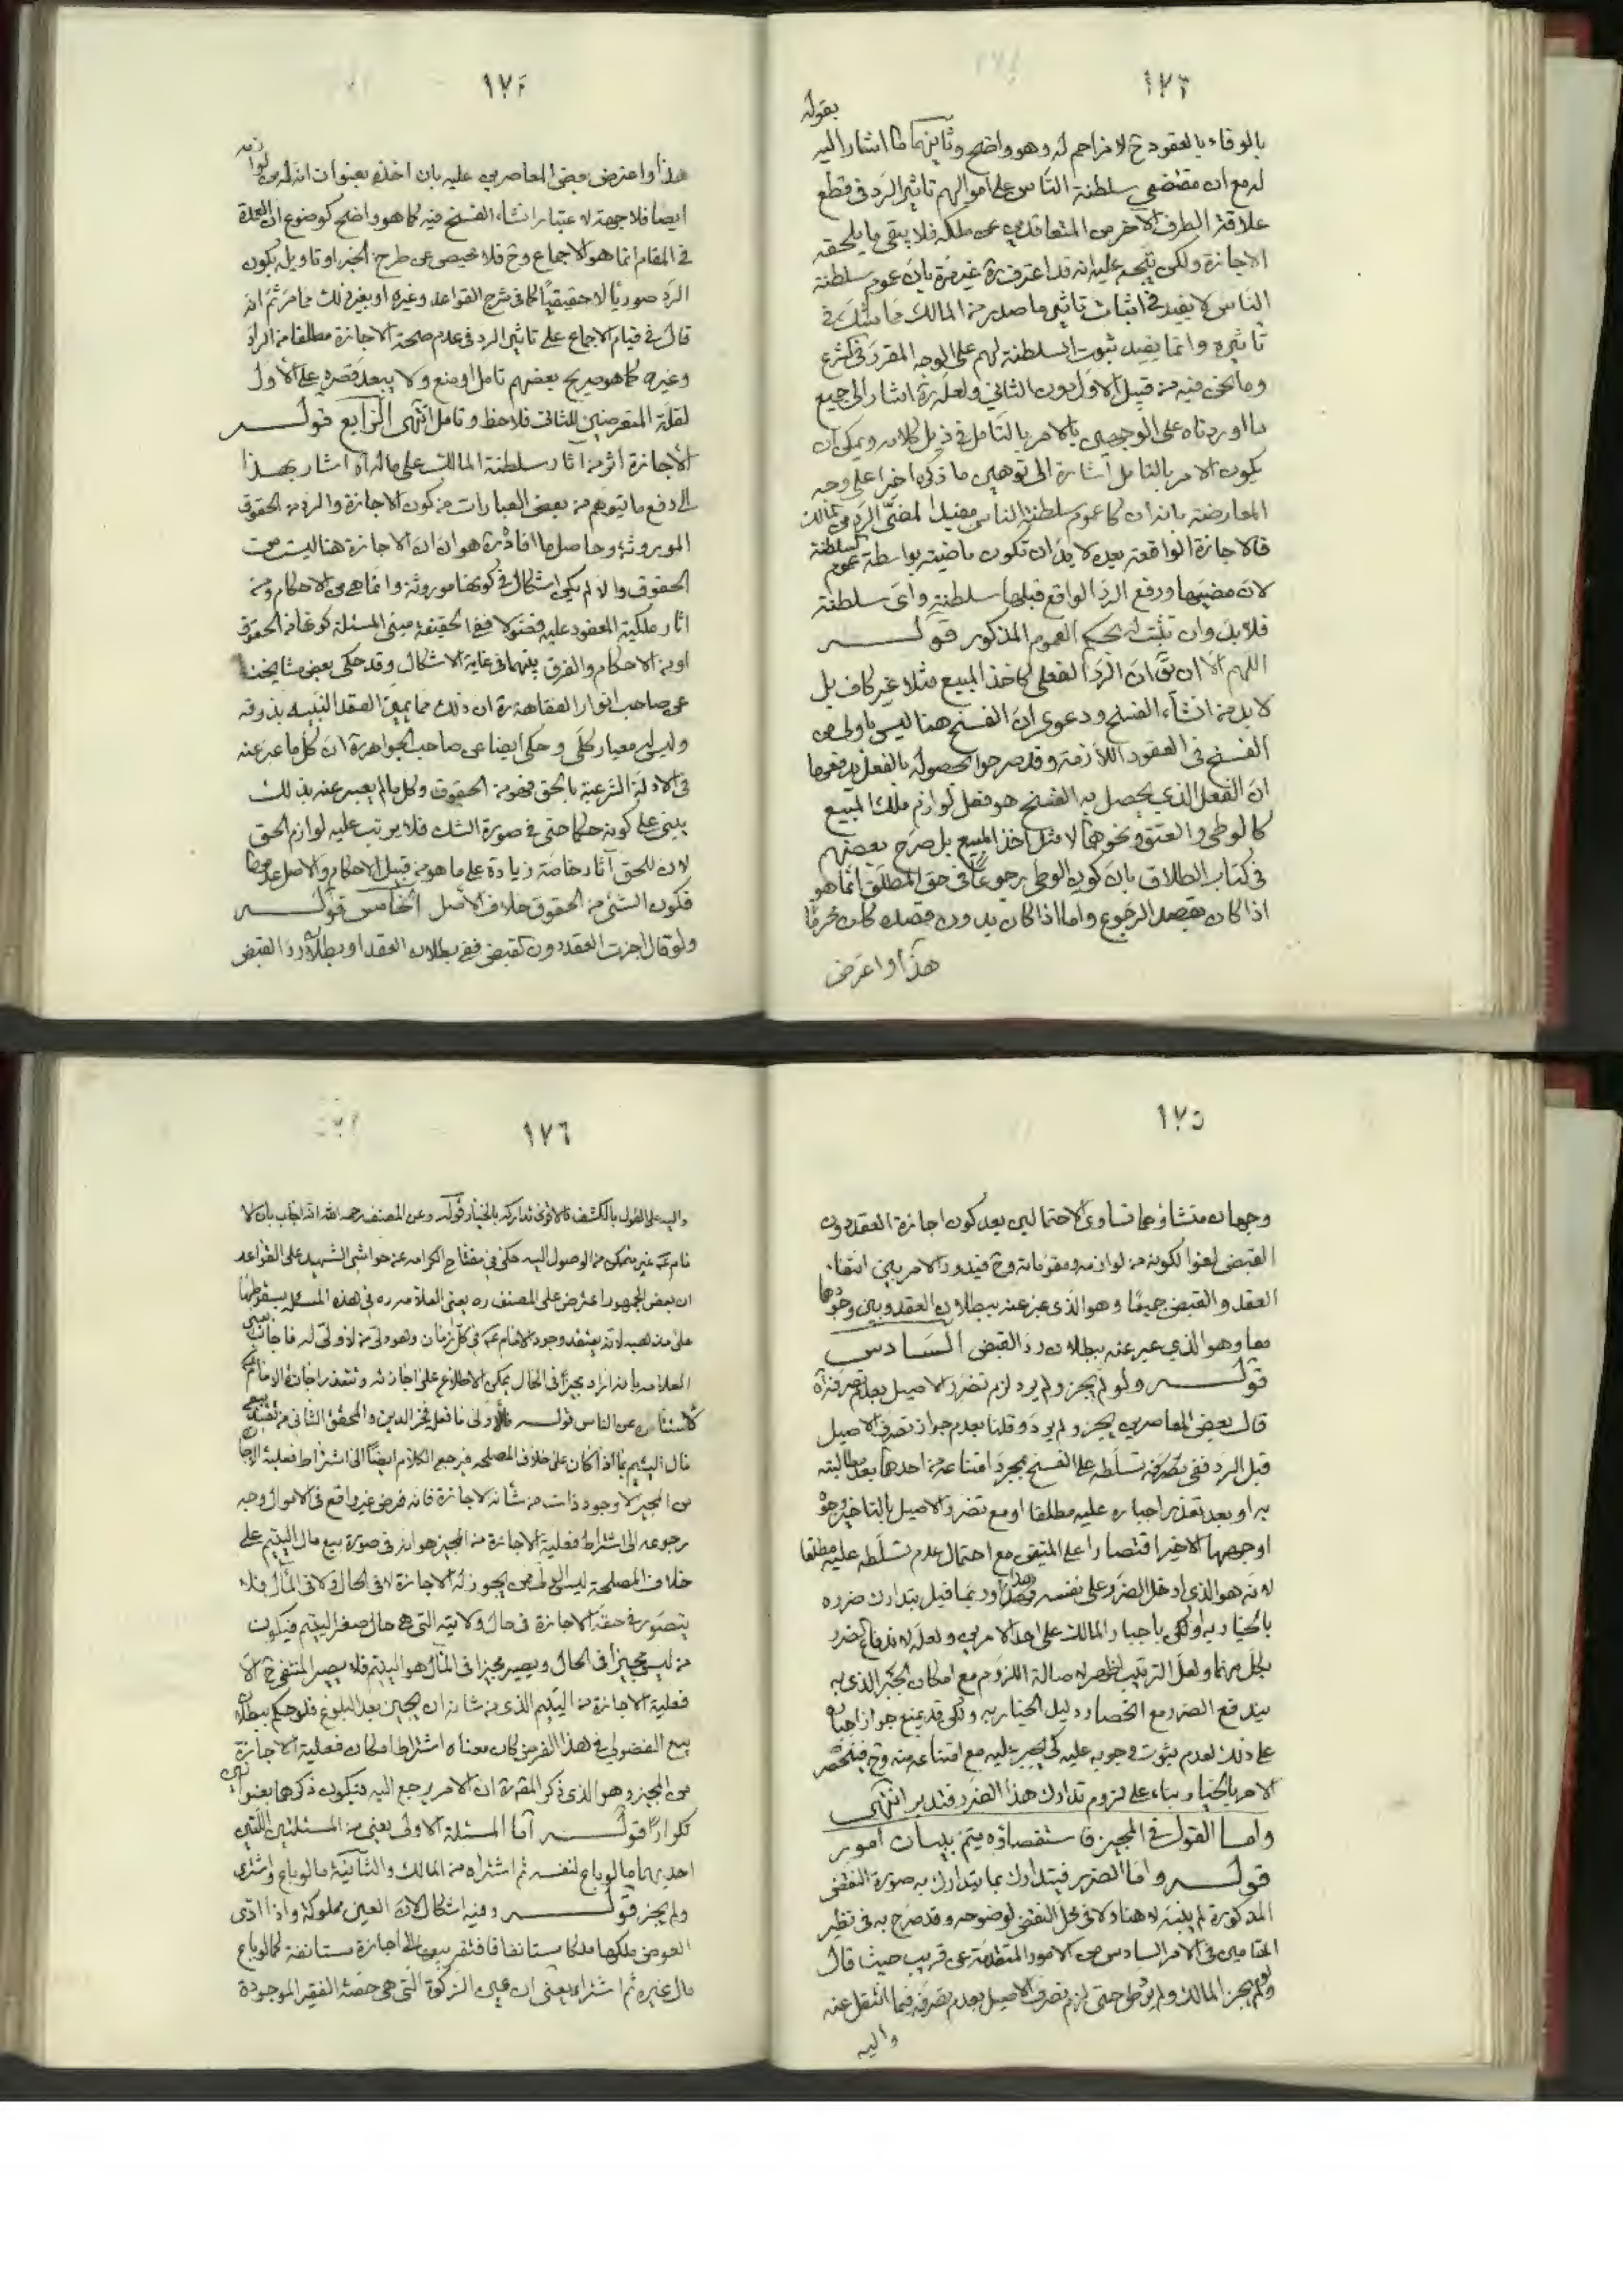 ١٧٣
بقوله
بالوفاء بالعقود ح لا مزاحم له وهو واضح وثانيهما ما اشار اليه
له مع ان مقتضى سلطنة الناس على اموالهم تاثير الرد في قطع
علاقة الطرف الاخر من المتعاقدين عن ملكه فلا يبقى ما يلحقه
الاجازة ولكن يتجه عليه انه قد اعترف ره غير مرة بان عموم سلطنة
الناس لا يفيد في اثبات تاثير ما صدر من المالك مما يشك في
تاثيره وانما يفيد ثبوت السلطنة لهم على الوجه المقرر في الشرع
وما نحن فيه من قبيل الاول دون الثاني ولعله ره اشار الى جميع
ما اوردناه على الوجهين بالامر بالتامل في ذيل كلامه ويمكن ان
يكون الامر بالتامل اشارة الى توهين ما ذكره اخيرا على وجه
المعارضة بانه ان كان عموم سلطنة الناس مفيدا لمضى الرد من المالك
فالاجازة الواقعة بعده لا بد ان تكون ماضية بواسطة عموم السلطنة
لان مضيها ورفع الرد الواقع قبلها سلطنة واى سلطنة
فلا بد وان تثبت له بحكم العموم المذكور قوله
اللهم الا ان يق ان الرد الفعلى كاخذ المبيع مثلا غير كاف بل
لا بد من انشاء الفسخ ودعوى ان الفسخ هنا ليس باولى من
الفسخ في العقود اللازمة وقد صرحوا بحصوله بالفعل يدفعها
ان الفعل الذي يحصل به الفسخ هو فعل لوازم ملك المبيع
كالوطى والعتق ونحوهما لا مثل اخذ المبيع بل صرح بعضهم
في كتاب الطلاق بان كون الوطى رجوعا في حق المطلق انما هو
اذا كان بقصد الرجوع واما اذا كان بدون قصده كان محرما
هذا واعترض
١٧٤
هذا واعترض بعض المعاصرين عليه بان اخذه بعنوان انه له من لوازمه
ايضا فلا جهة لاعتبار انشاء الفسخ فيه كما هو واضح كوضوع ان العمدة
في المقام انما هو الاجماع وح فلا محيص عن طرح الخبر او تاويله بكون
الرد صوريا لا حقيقيا كما في شرح القواعد وغيره او بغير ذلك مما مر ثم انه
قال في قيام الاجماع على تاثير الرد في عدم صحة الاجازة مطلقا من الراد
وغيره كما هو صريح بعضهم تامل او منع ولا يبعد قصره على الاول
لقلة المتعرضين للثاني فلاحظ وتامل انتهى الرابع قوله
الاجازة اثر من اثار سلطنة المالك على ماله اه اشار بهذا
الى دفع ما يتوهم من بعض العبارات من كون الاجازة والرد من الحقوق
الموروثة وحاصل ما افاده ره هو ان الاجازة هنا ليست من
الحقوق والا لم يكن اشكال في كونها موروثة وانما هي من الاحكام ومن
اثار ملكية المعقود عليه فضولا ففى الحقيقة مبنى المسئلة كونها من الحقوق
او من الاحكام والفرق بينهما في غاية الاشكال وقد حكى بعض مشايخنا
عن صاحب انوار الفقاهة ره ان ذلك مما يميز الفقيه النبيه بذوقه
وليس له معيار كلى وحكى ايضا عن صاحب الجواهر ره ان كل ما عبر عنه
في الادلة الشرعية بالحق فهو من الحقوق وكل ما لم يعبر عنه بذلك
يبنى على كونه حكما حتى في صورة الشك فلا يرتب عليه لوازم الحق
لان للحق آثار خاصة زيادة على ما هو من قبيل الاحكام والاصل عدمها
فكون الشئ من الحقوق خلاف الاصل الخامس قوله
ولو قال اجزت العقد دون القبض ففى بطلان العقد او بطلان رد القبض
١٧٥
وجهان منشاؤهما تساوى الاحتمالين بعد كون اجازة العقد دون
القبض لغوا لكونه من لوازمه ومقوماته وح فيدور الامر بين انتفاء
العقد والقبض جميعا وهو الذى عبر عنه ببطلان العقد وبين وجودهما
معا وهو الذي عبر عنه ببطلان رد القبض السادس
قوله ولو لم يجز ولم يرد لزم تضرر الاصيل بعدم تصرفه اه
قال بعض المعاصرين لو لم يجز ولم يرد وقلنا بعدم جواز تصرف الاصيل
قبل الرد ففى تسلطه على الفسخ بمجرد امتناعه من احدهما بعد مطالبته
به او بعد تعذر اجباره عليه مطلقا او مع تضرر الاصيل بالتاخير وجوه
اوجهها الاخير اقتصارا على المتيقن مع احتمال عدم تسلطه عليه مطلقا
لانه هو الذي ادخل الضرر على نفسه وربما قيل بتدارك ضرره
بالخيار به او لكن باجبار المالك على احد الامرين ولعله لاندفاع ضرر
بكل منهما ولعل الترتيب اظهر لاصالة اللزوم مع امكان الجبر الذى به
يندفع الضرر مع انحصار دليل الخيار به ولكن قد يمنع جواز اجباره
على ذلك لعدم ثبوت وجوبه عليه كى يجبر عليه مع امتناعه منه وح فينحصر
الامر بالخيار بناء على لزوم تدارك هذا الضرر فتدبر انتهى
واما القول في المجيز فاستقصاؤه يتم ببيان امور
قوله واما الضرر فيتدارك بما يتدارك به صورة النقض
المذكورة لم يبينه لا هنا ولا في محل النقض لوضوحه وقد صرح به في نظير
المقامين في الامر السادس من الامور المتقدمة عن قريب حيث قال
ولو لم يجز المالك ولم يرد حتى لزم تضرر الاصيل بعدم تصرفه فيما انتقل عنه
واليه
١٧٦
واليه على القول بالكشف فالاقوى تداركه بالخيار قوله وعن المصنف رحمه الله انه اجاب بان الا
مام ع غير متمكن من الوصول اليه حكى في مفتاح الكرامه عن حواشى الشهيد على القواعد
ان بعض الجمهور اعترض على المصنف ره يعنى العلامه ره في هذه المسئله بسقوطها
على مذهبه لانه يعتقد وجود الامام ع في كل زمان وهو ولى من لا ولى له فاجاب يعنى
العلامه بانه اراد مجيزا في الحال يمكن الاطلاع على اجازته وتتعذر اجازة الامام ع
لاستتاره عن الناس قوله فالاولى ما فعل فخر الدين والمحقق الثاني من تقييد بيع
مال اليتيم بما اذا كان على خلاف المصلحه فيرجع الكلام ايضا الى اشتراط فعلية الاجازة
من المجيز لا وجود ذات من شانه الاجازة فانه فرض غير واقع في الاموال وجه
رجوعه الى اشتراط فعلية الاجازة من المجيز هو انه في صورة بيع مال اليتيم على
خلاف المصلحه ليس الولى ممن يجوز له الاجازة لا في الحال ولا في المآل فلا
يتصور في حقه الاجازة في حال ولايته التى هي حال صغر اليتيم فيكون
من ليس مجيزا في الحال ويصير مجيزا في المآل هو اليتيم فلا يصير المنتفى ح الا
فعلية الاجازة من اليتيم الذى من شانه ان يجيز بعد البلوغ فلو حكم ببطلان
بيع الفضولى في هذا الفرض كان معناه اشتراط امكان فعلية الاجازة
من المجيز وهو الذى ذكر المقرر ره ان الامر يرجع اليه فيكون ذكرهما بعنوانين
تكرارا قوله اما المسئلة الاولى يعنى من المسئلتين اللتين
احديهما ما لو باع لنفسه ثم اشتراه من المالك والثانية ما لو باع واشترى
ولم يجز قوله وفيه اشكال لان العين مملوكة واذا ادى
العوض ملكها ملكا مستانفا فافتقر بيعها الى اجازة مستانفة كما لو باع
مال غيره ثم اشتراه يعنى ان عين الزكوة التى هي حصة الفقير الموجودة